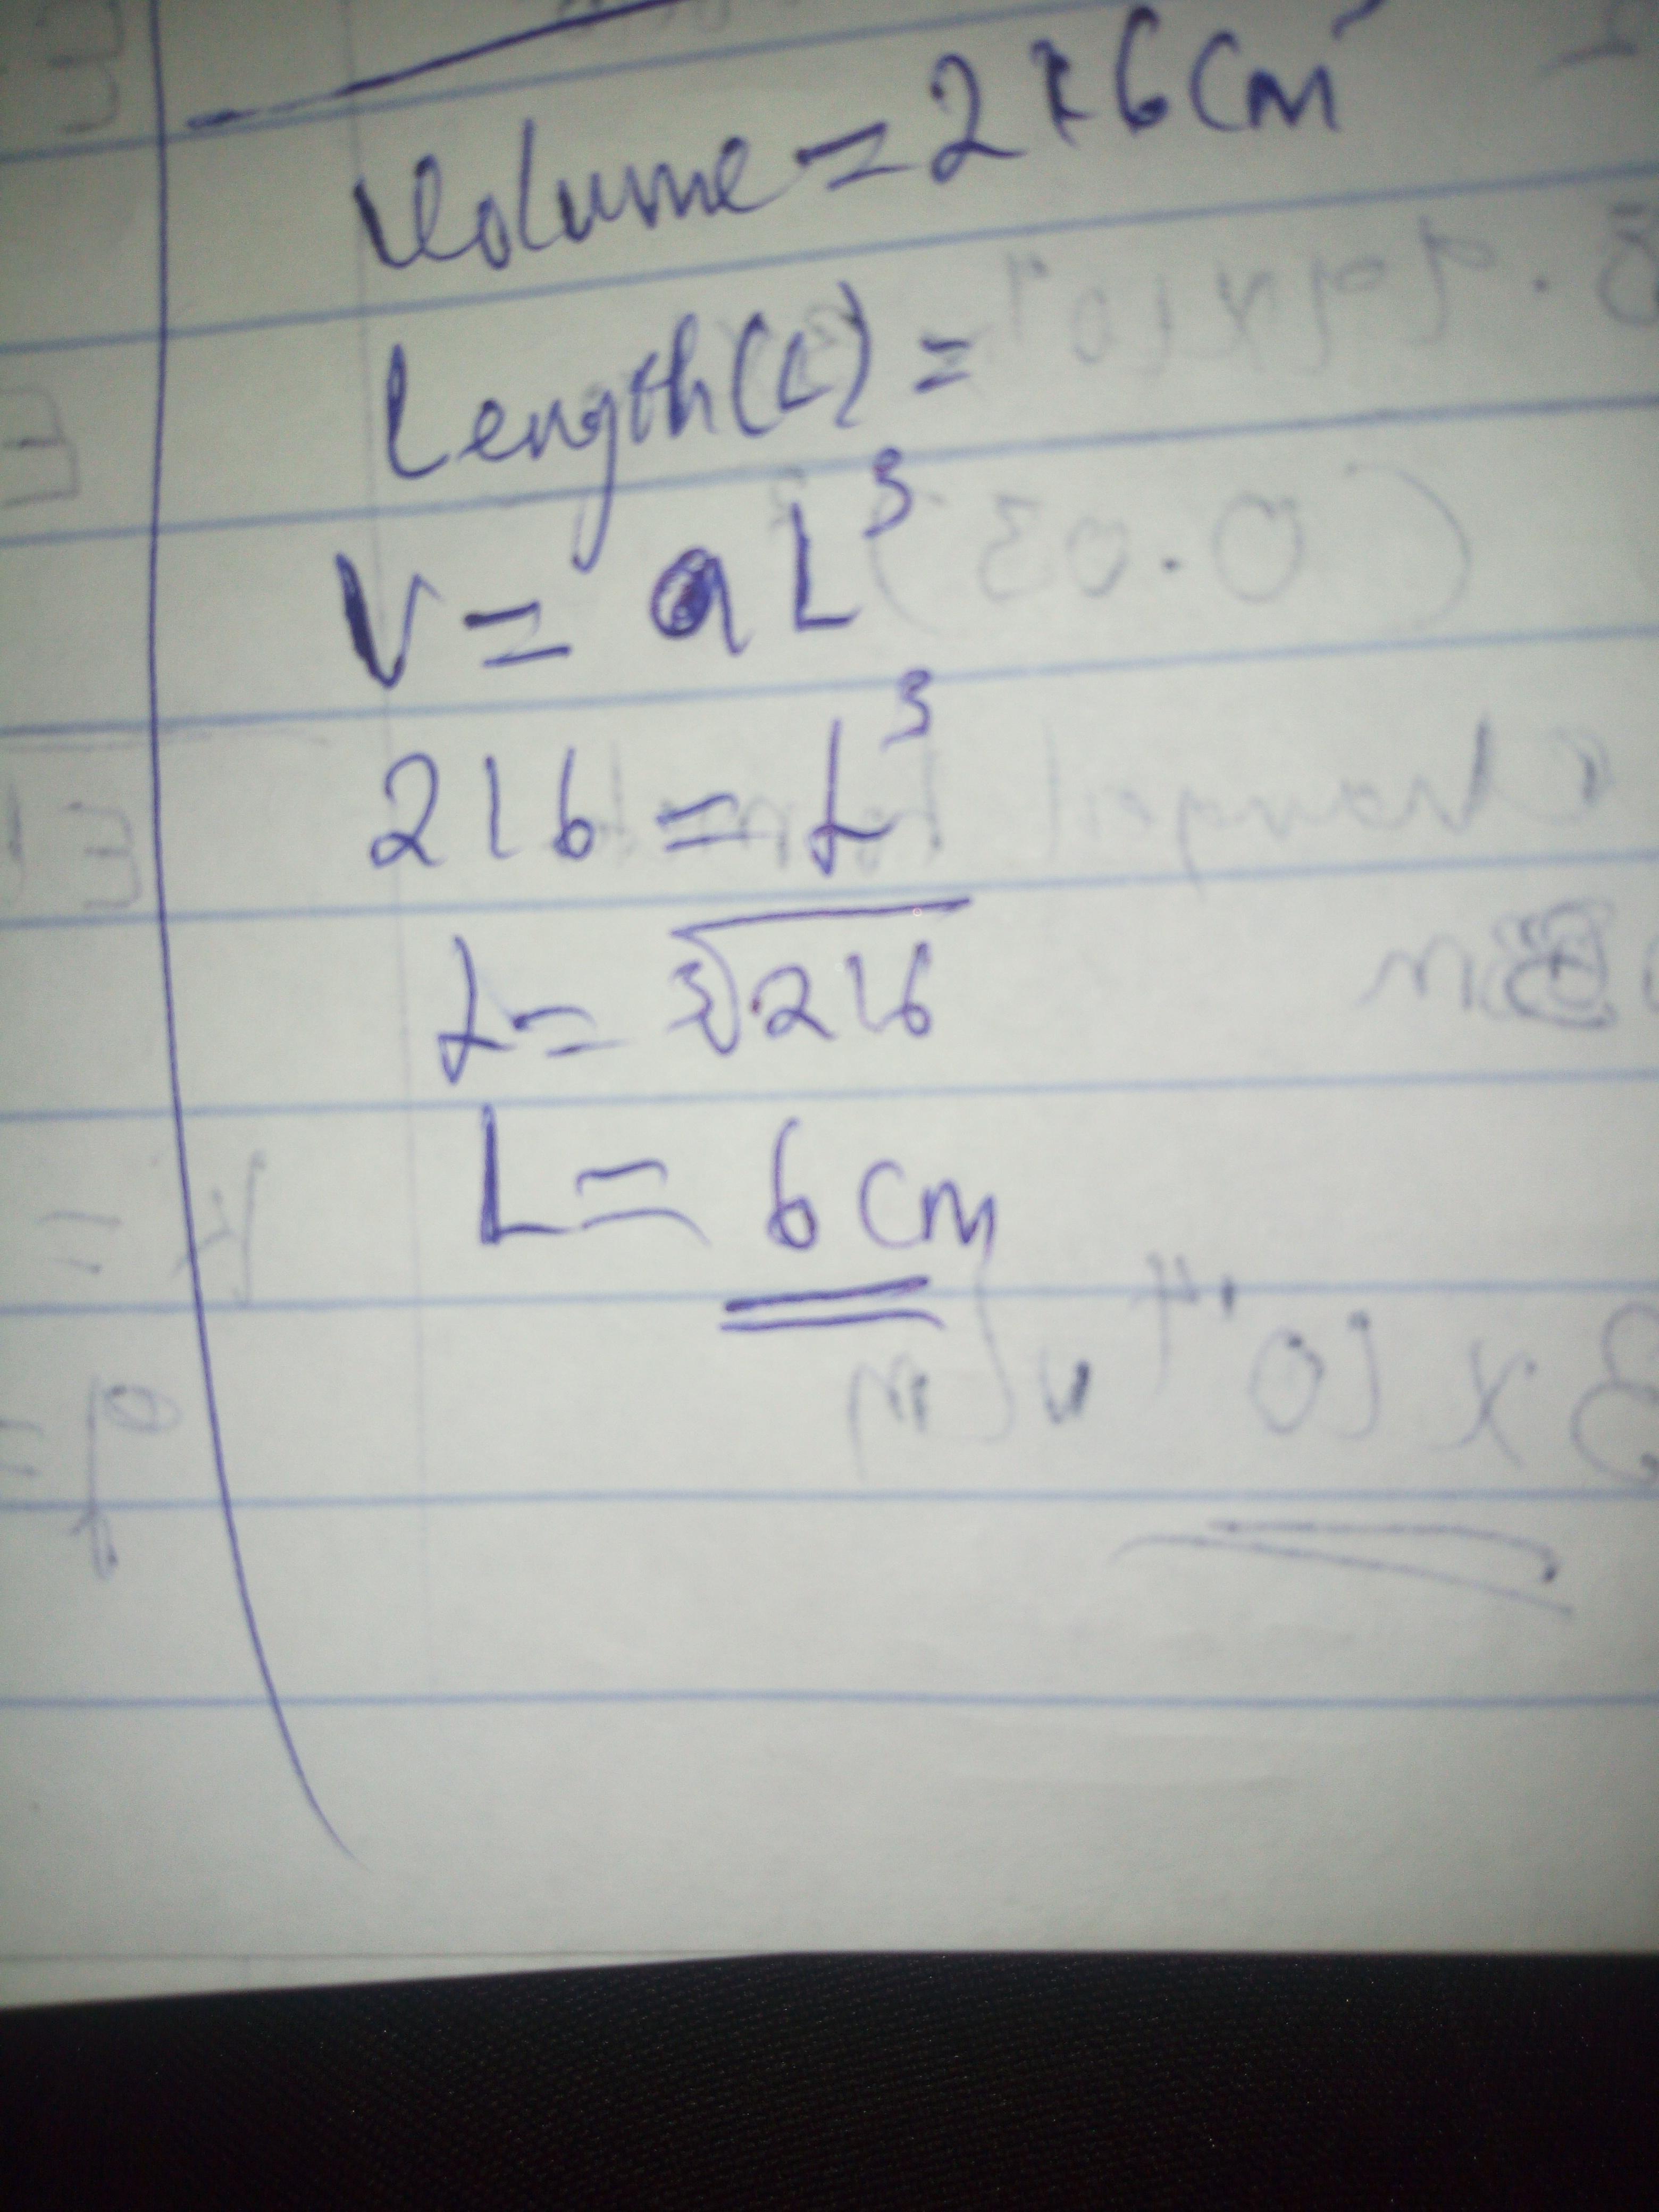 Volume = 216cm
Length(L) =
V = a L³
216 = L³
L = ∛216
L = 6 cm